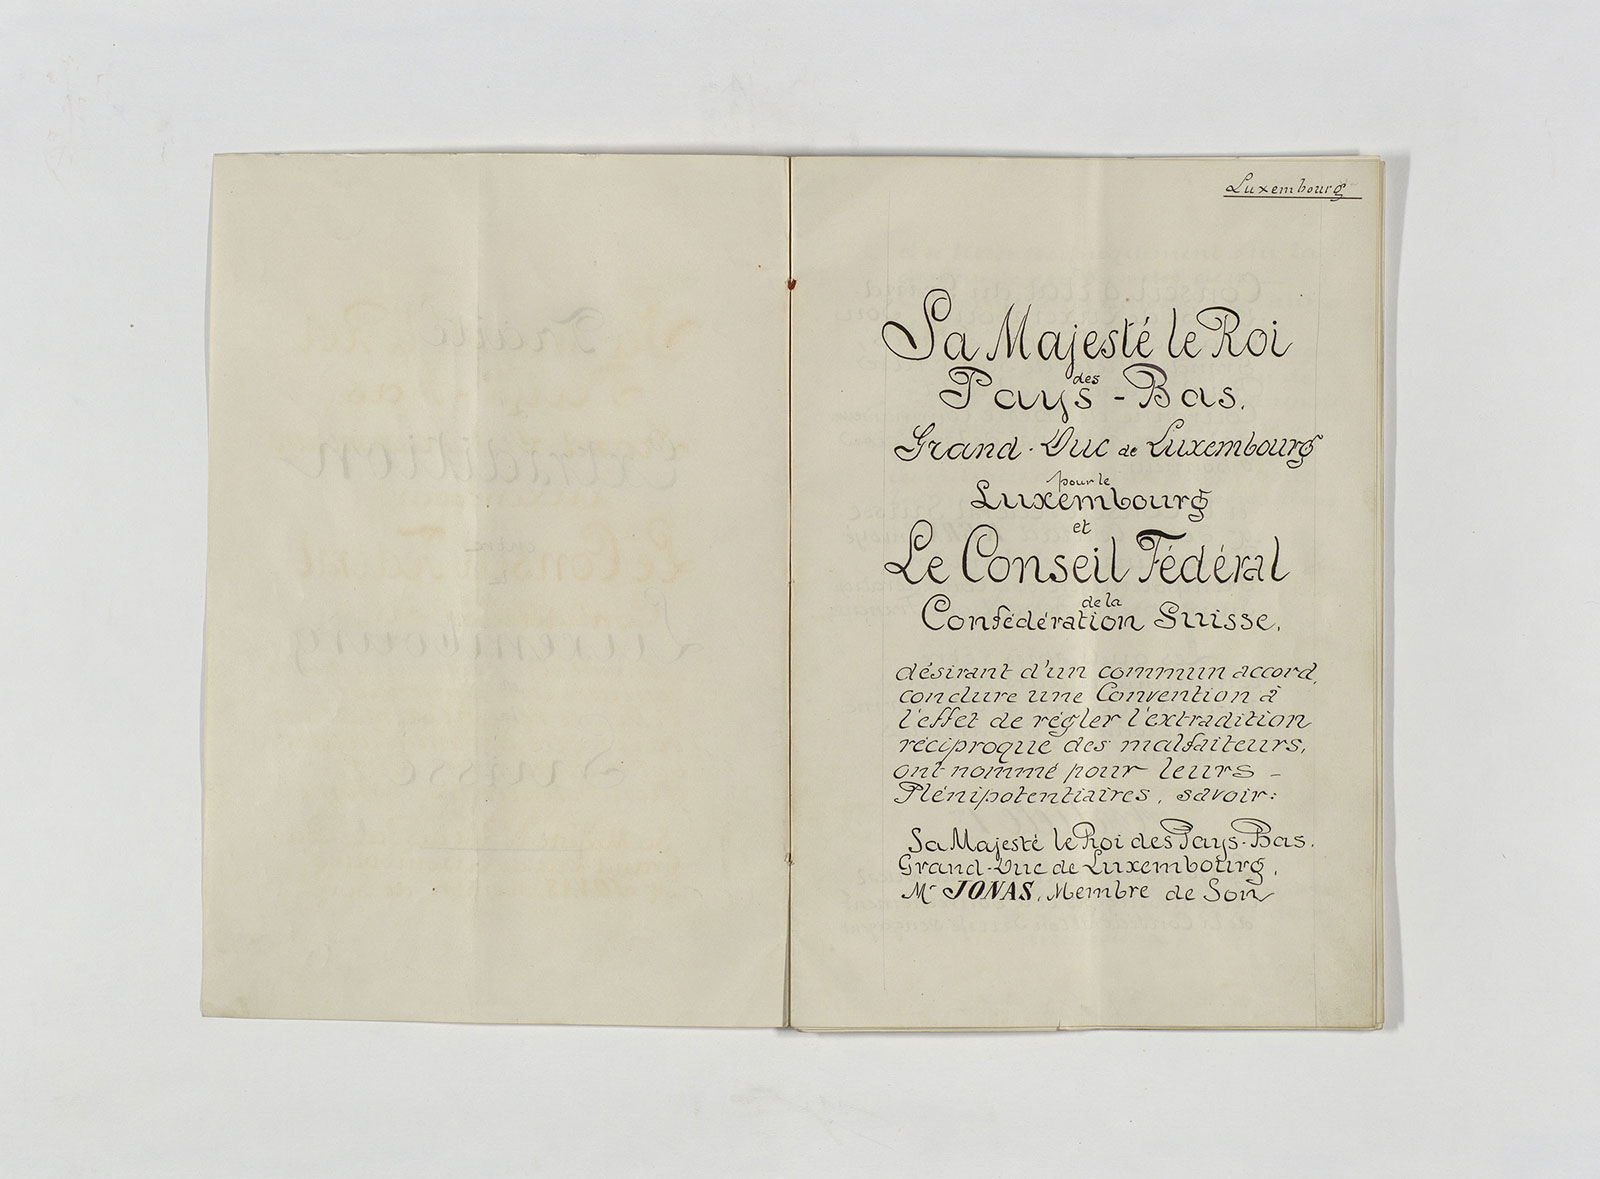 Luxembourg
Sa Majesté le Roi
des
Pays-Bas,
Grand-Duc de Luxembourg
pour le
Luxembourg
et
Le Conseil Fédéral
de la
Confédération Suisse,
désirant d'un commun accord,
conclure une Convention à
l'effet de régler l'extradition
réciproque des malfaiteurs,
ont nommé pour leurs -
Plénipotentiaires, savoir:
Sa Majesté le Roi des Pays-Bas,
Grand-Duc de Luxembourg,
Mr JONAS, Membre de Son